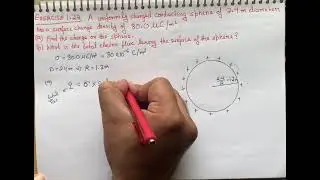 EXERCISE 1.22 A uniformly charged conducting sphere of 2.4m diameter
has a surface charge density of 80.0 μC/m²
(a) Find the charge on the sphere.
(b) What is the total electric flux leaving the surface of the sphere?
σ = 80.0 μC/m² = 80 × 10⁻⁶ C/m²
D = 2.4m, R = 1.2m
(a) q = σ ×